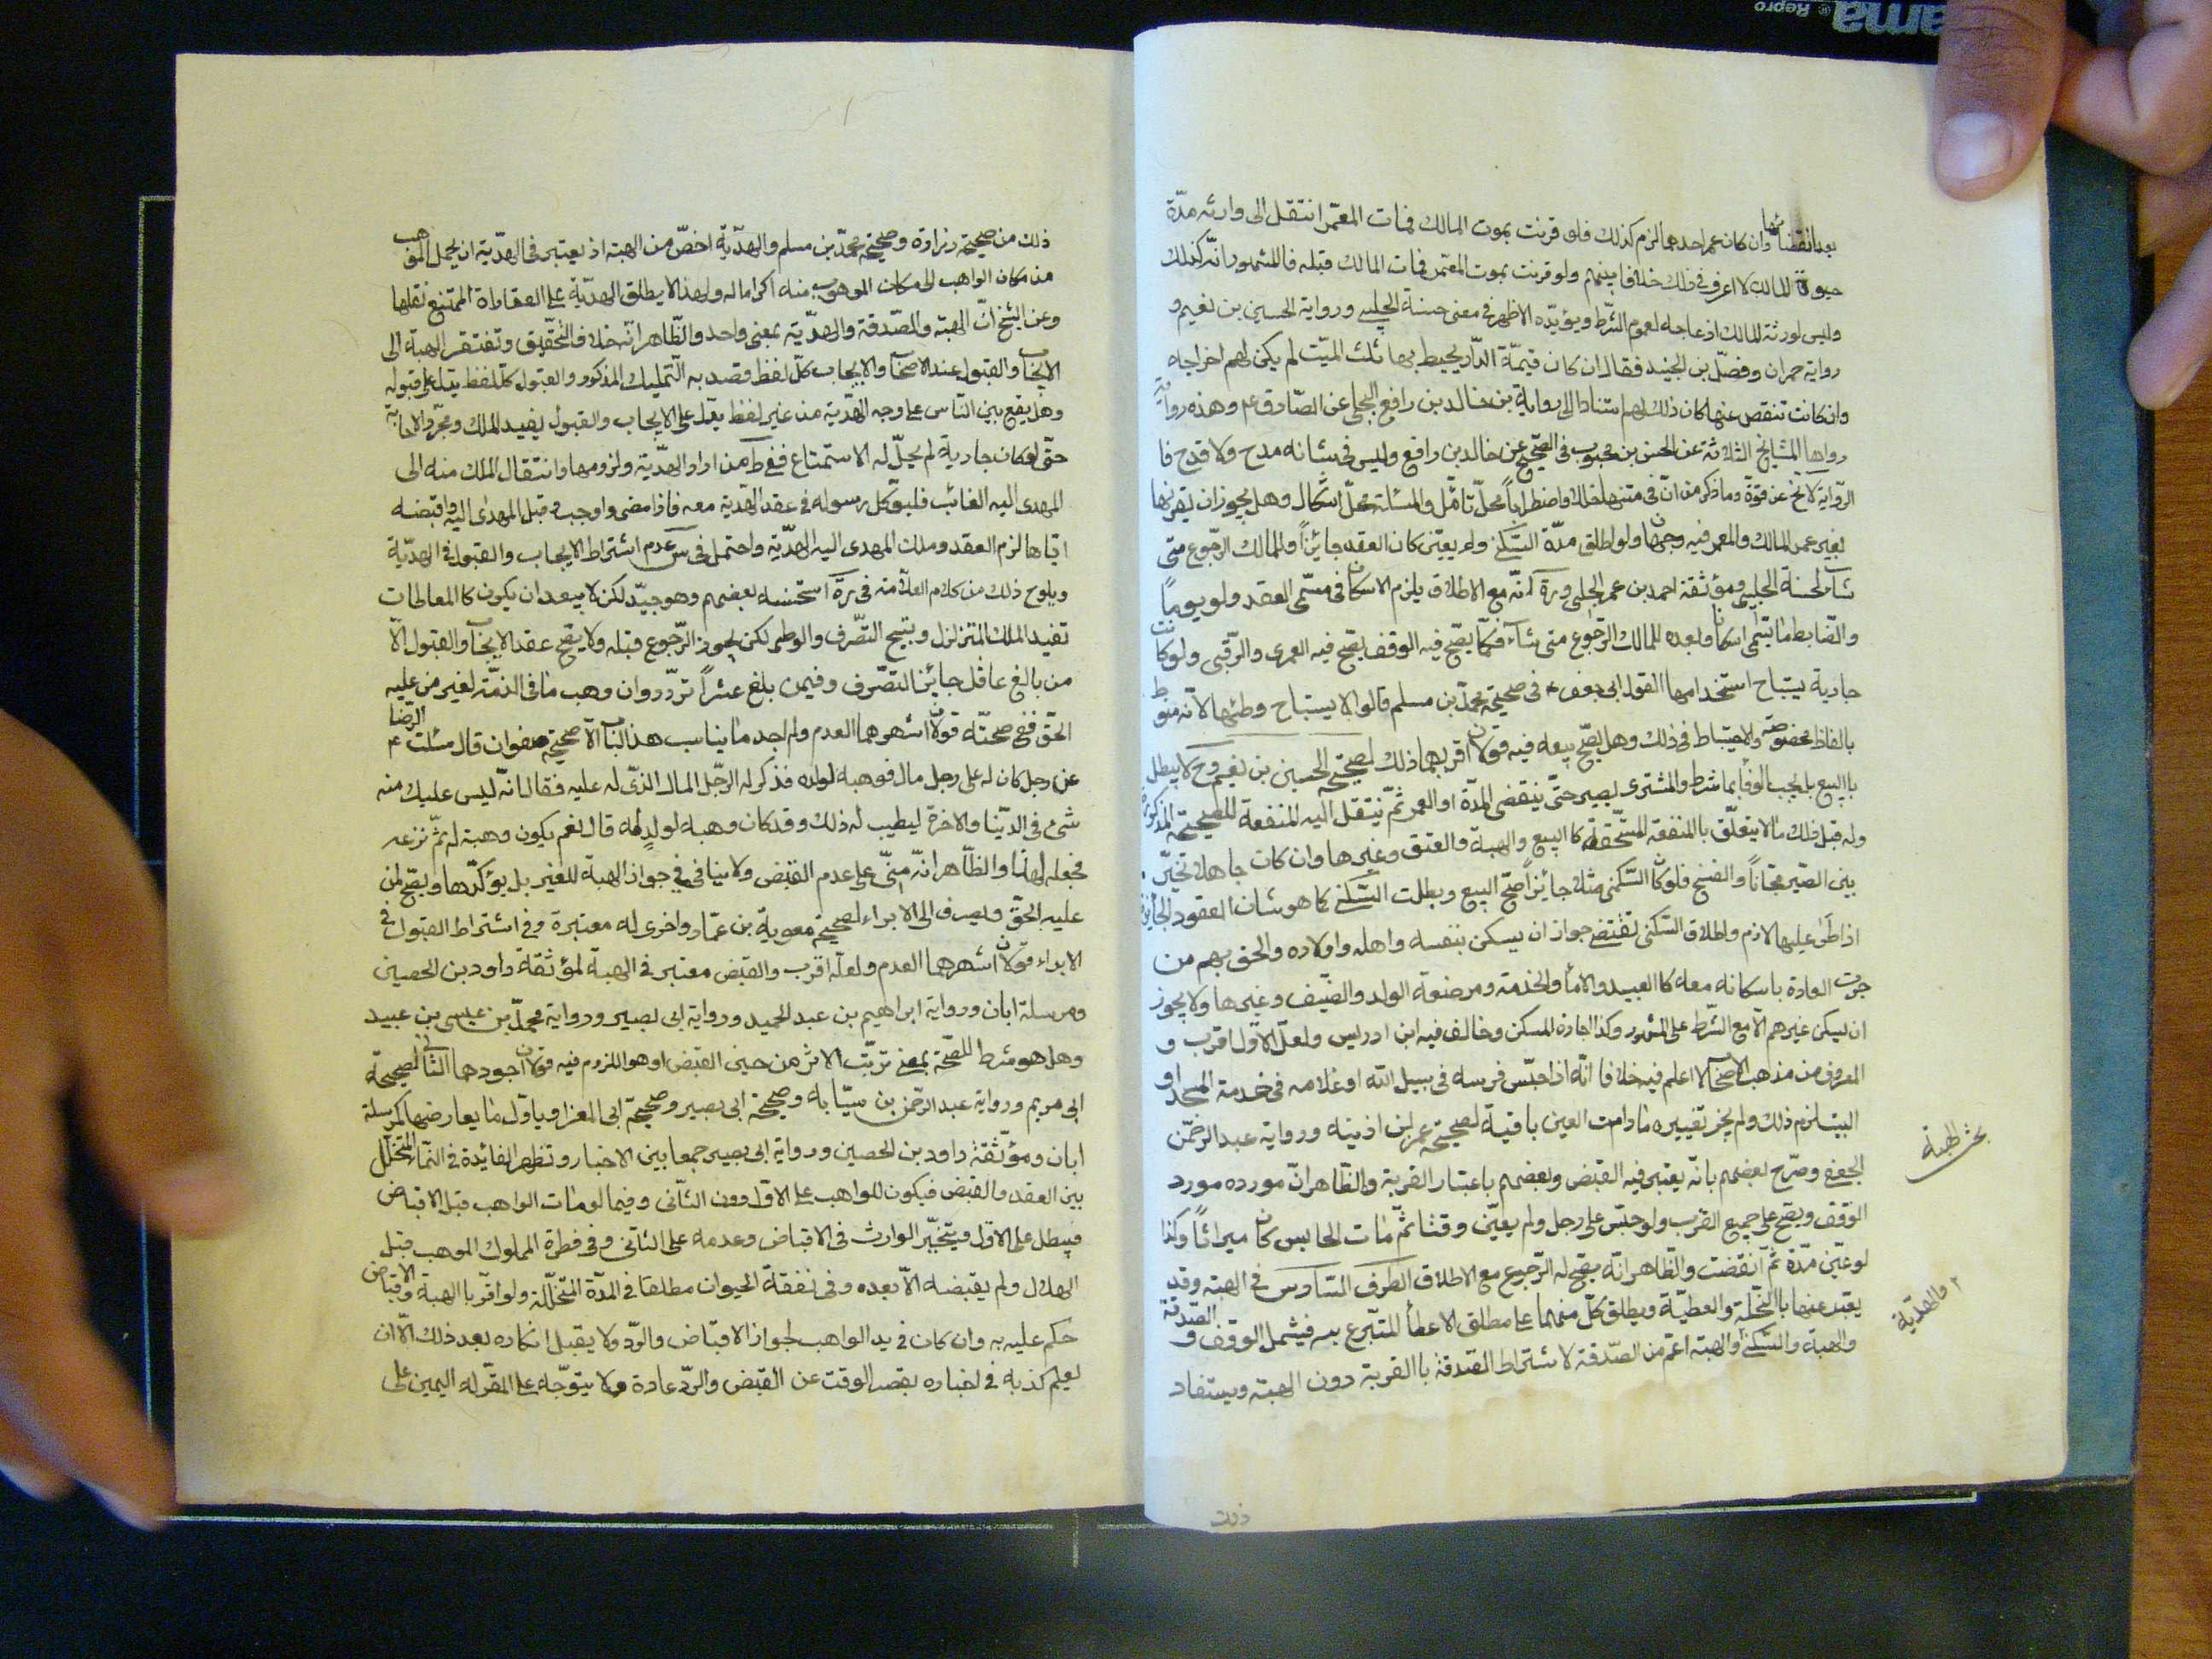 بعد انقضائها وان كان عمر احدهما لزم كذلك فلو قرنت بموت المالك فمات المعمّر انتقل الى وارثه مدّة
حيوة المالك لا اعرف في ذلك خلافا بينهم ولو قرنت بموت المعمّر فمات المالك قبله فالمشهور انّه كذلك
وليس لورثة المالك ازعاجه لعموم الشّرط ويؤيّده الاظهر في معنى حسنة الحلبي ورواية الحسين بن نعيم و
رواية حمران وفصّل بن الجنيد فقال ان كان قيمة الدّار يحيط بها ثلث الميّت لم يكن لهم اخراجه
وان كانت تنقص عنها كان ذلك لهم استنادا الى رواية بن خالد بن رافع البجلي عن الصّادق ع وهذه رواية
رواها المشايخ الثلاثة عن الحسن بن محبوب في الصّحيح عن خالد بن رافع وليس في شانه مدح ولا قدح فا
الرّواية لا تخ عن قوّة وما ذكر من انّ في متنها خللا واضطرابا محلّ تامّل والمسئلة محلّ اشكال وهل يجوز ان يقرنها
بغير عمر المالك والمعمر فيه وجهان ولو اطلق مدّة السّكنى ولم يعيّن كان العقد جائزاً وللمالك الرّجوع متى
شآء لحسنة الحلبي وموثّقة احمد بن عمر الحلبي ورة انّه مع الاطلاق يلزم الاسكان في مسمّى العقد ولو يوماً
والضّابط ما يسمّى اسكانا وبعده للمالك الرّجوع متى شآء فكمّا يصّح فيه الوقف يصّح فيه العمرى والرّقبى ولو كانت
جارية يستباح استخدامها القول ابى جعفر ع في صحيحة محمّد بن مسلم قالوا لا يستباح وطئها لانّه منوط
بالفاظ مخصوصة والاحتياط في ذلك وهل يصّح بيعه فيه قولان اقربهما ذلك لصحيحة الحسين بن نعيم وح لا يبطل
باالبيع بل يجب الوفا بما شرط والمشترى يصير حتّى ينقضى المدّة او العمر ثمّ ينتقل اليه المنفعة للصحيحة المذكورة
وله قبل ذلك ما لا يتعلّق باالمنفعة المستحقّقة كا البيع والهبة والعتق وغيرها وان كان جاهلا تخيّر
بين الصّبر مجّاناً والفسخ فلو كان السّكنى مثلا جائزا صحّ البيع وبطلت السّكنى كما هو شان العقود الجائزة
اذا طئ عليها لازم واطلاق السّكنى تقتضى جواز ان يسكن بنفسه واهله واولاده والحق بهم من
جرت العادة باسكانه معه كا العبيد والاماء والخدمة ومرضعة الولد والضّيف وغيرها ولا يجوز
ان يسكن غيرهم الّا مع الشّرط على المشهور وكذا اجارة المسكن وخالف فيه ابن ادريس ولعلّ الاوّل اقرب و
المعروف من مذهب الاصحاب لا اعلم فيه خلافا انّه اذا حبّس فرسه في سبيل اللّه او غلامه في خدمة المسجد او
البيت لزم ذلك ولم يجز تغييره ما دامت العين باقية لصحيحة عمر بن اذينه ورواية عبد الرحمّن
الجعفى وصرّح بعضهم بانّه يعتبر فيه القبض وبعضهم باعتبار القربة والظّاهر انّ مورده مورد
الوقف ويصّح على جميع القرب ولو حبّس على رجل ولم يعيّن وقتا ثمّ مات الحابس كان ميراثاً وكذا
لو عيّن مدّة ثمّ انقضت والظّاهر انّه يصحّ له الرّجوع مع الاطلاق الطرف السّادس في الهبة وقد
يعبّر عنها باالنّحلة والعطيّة ويطلق كلّ منهما على مطلق الاعطاء المتبّرع به فيشمل الوقف و الصّدقة
والهبة والسّكنى والهبة اعمّ من الصّدقة لاشتراط الصّدقة باالقربة دون الهبة ويستفاد
بحث الهبة
والهديّة
ذلك
ذلك من صحيحة زرارة وصحيحة محمّد بن مسلم والهديّة اخصّ من الهبة اذ يعتبر في الهديّة ان يحمل الموهب
من مكان الواهب الى مكان الموهوب منه اكراما له ولهذا لا يطلق الهديّة على العقارات الممتنع نقلها
وعن الشّيخ انّ الهبة والصّدقة والهديّة بمعنى واحد والظّاهر انّه خلاف التّحقيق وتفتقر الهبة الى
الايجاب والقبول عند الاصحاب والايجاب كلّ لفظ قصد به التّمليك المذكور والقبول كلّ لفظ يدلّ على قبوله
وهل يقع بين النّاس على وجه الهديّة من غير لفظ يدلّ على الايجاب والقبول يفيد الملك ومجرّد الاباحة
حتّى لو كان جارية لم يحلّ له الاستمتاع ففى ط من اراد الهديّة ولزومها وانتقال الملك منه الى
المهدى اليه الغائب فليوّكل رسوله في عقد الهديّة معه فاذا مضى واوجب وقبل المهدى اليه واقبضه
ايّاها لزم العقد وملك المهدى اليه الهديّة واحتمل في س عدم اشتراط الايجاب والقبول في الهديّة
ويلوح ذلك من كلام العلّامة في رة استحسنه بعضهم وهو جيّد لكن لا يبعد ان يكون كا المعاطات
تفيد الملك المتزلزل ويبيح التصّرف والوطى لكن يجوز الرّجوع قبله ولا يصّح عقد الايجاب والقبول الّا
من بالغ عاقل جائز التصّرف وفيمن بلغ عشراً تردّد وان وهب ما في الذمّة لغير من عليه
الحقّ ففى صحتّه قولان اشهرهما العدم ولم اجد ما يناسب هذا الباب الّا صحيحة صفوان قال سئلت الرّضا ع
عن رجل كان له على رجل مال فوهبه لولده فذكر له الرّجل المال الذى له عليه فقال انّه ليس عليك منه
شئ في الدّنيا والاخرة ليطيب له ذلك وقد كان وهبه لولدله قال نعم يكون وهبة له ثمّ نزعه
فجعله لهذا والظّاهر انّه مبنىّ على عدم القبض ولا ينافى في جواز الهبة للغير بل يؤكّدها ويصّح لمن
عليه الحقّ ويصرف الى الابراء لصحيحة معوية بن عمّار واخرى له معتبرة وفى اشتراط القبول في
الابراء قولان اشهرهما العدم ولعلّه اقرب والقبض معتبر في الهبة لموثّقة داود بن الحصين
ومرسلة ابان ورواية ابراهيم بن عبد الحميد ورواية ابى بصير ورواية محمّد بن عيسى بن عبيد
وهل هو شرط للصّحة بمعنى تربّت الاثر من حين القبض او هو اللزوم فيه قولان اجودهما الثّانى لصحيحة
ابى مريم ورواية عبد الرحمّن بن سيّابه وصحيحة ابى بصير وصحيحة ابى المعزا وياوّل ما يعارضها كمرسلة
ابان وموثّقة داود بن الحصين ورواية ابى بصير جمعا بين الاخبار وتظهر الفائدة في النّماء المتخلّل
بين العقد والقبض فيكون للواهب على الاوّل دون الثّانى وفيما لو مات الواهب قبل الاقباض
فيبطل على الاوّل ويتخيّر الوارث في الاقباض وعدمه على الثانى وفى فطرة المملوك الموهب قبل
الهلال ولم يقبضه الّا بعده وفى نفقة الحيوان مطلقا في المدّة المتخلّلة ولو اقرّ باالهبة والاقباض
حكم عليه به وان كان في يد الواهب لجواز الاقباض والرّد ولا يقبل انكاره بعد ذلك الّا ان
يعلم كذبه في اخباره بقصر الوقت عن القبض والرّد عادة ولا يتوجّه على المقرّ له اليمين على